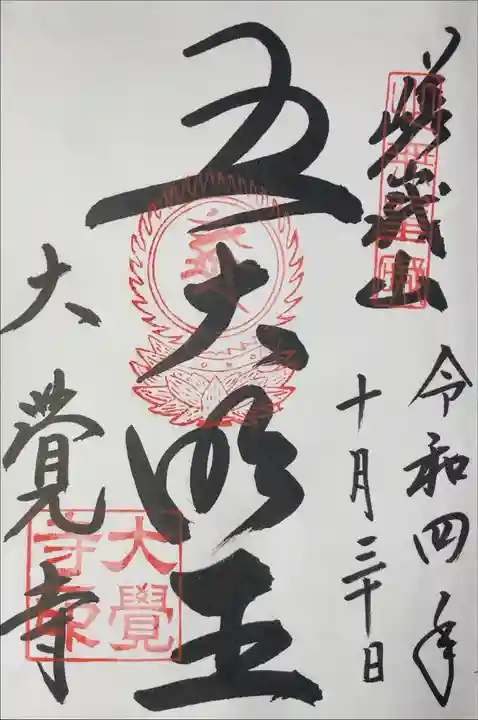 嵯峨山
令和四年
十月三十日
五大明王
大覺寺
大覺
寺印